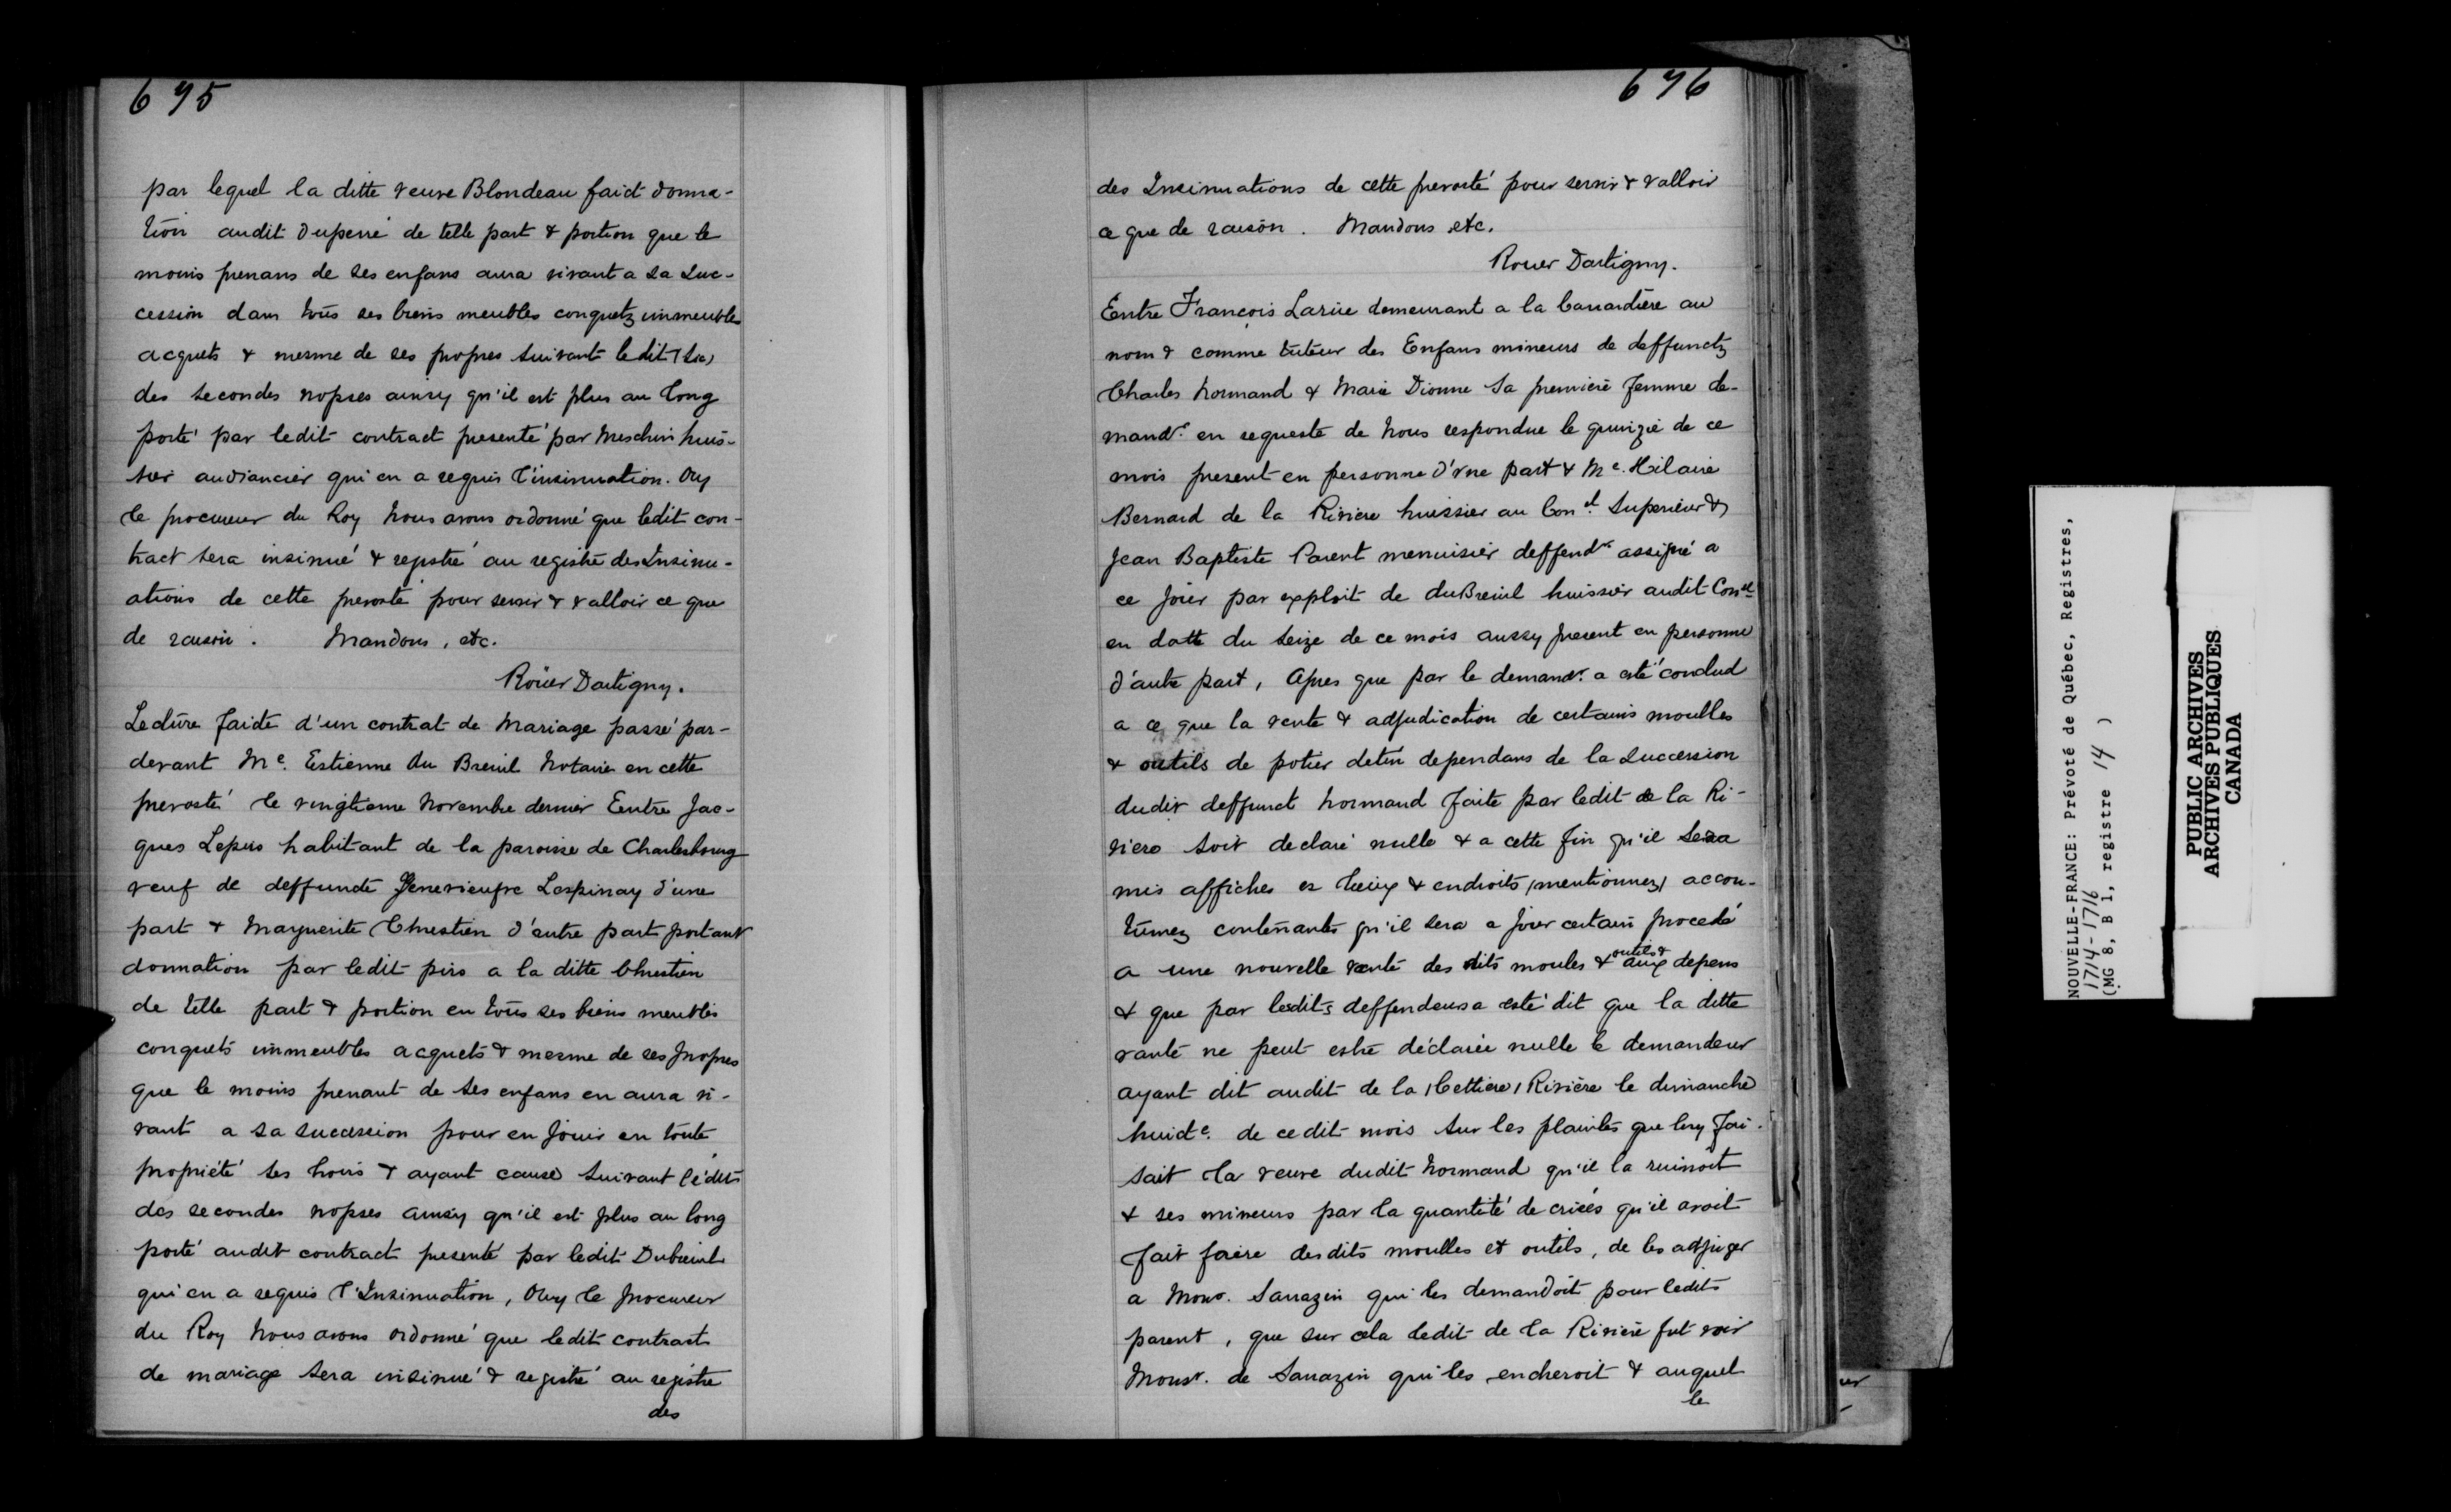 695
par lequel la ditte veuve Blondeau faict donna-
tion audit duperré de telle part & portion que le
moins prenans de ses enfans aura vivant a sa suc-
cession dans tous ses biens meubles conquetz immeubles
acquets & mesme de ses propres suivant ledit (sic)
des secondes nopses ainsy qu'il est plus au long
porté par ledit contract presenté par Meschin huis-
sier audiancier qui en a requis l'insinuation. Ouy
le procureur du Roy Nous avons ordonné que ledit con-
tract sera insinué & registré au registre des Insinu-
ations de cette prevosté pour servir & valloir ce que
de raison. Mandons, etc.
Roüer Dartigny.
Lecture faicte d'un contrat de Mariage passé par-
devant Me. Estienne du Breuil Notaire en cette
prevosté le vingtieme Novembre dernier Entre Jac-
ques Lepirs habitant de la paroisse de Charlesbourg
veuf de deffuncte Genevieufve Lespinay d'une
part & Marguerite Chrestien d'autre part portant
donnation par ledit pirs a la ditte Chrestien
de telle part & portion en tous ses biens meubles
conquets immeubles acquets & mesme de ses propres
que le moins prenant de ses enfans en aura vi-
vant a sa succession pour en Jouir en toute
propriété ses hoirs & ayant cause suivant l'édit
des secondes nopses ainsy qu'il est plus au long
porté audit contract presenté par ledit Dubreuil
qui en a requis l'Insinuation, Ouy le procureur
du Roy Nous avons ordonné que ledit contract
de mariage sera insinué & registré au registre
des
696
des Insinuations de cette prevosté pour servir & valloir
ce que de raison. Mandons etc.
Rouer Dartigny.
Entre François Larüe demeurant a la Canardiere au
nom & comme tuteur des Enfans mineurs de deffunctz
Charles Normand & Marie Dionne sa premiere femme de-
mandr. en requeste de Nous respondue le quinzie de ce
mois present en personne d'vne part & Me. Hilaire
Bernard de la Riviere huissier au Conel. Superieur &
Jean Baptiste Parent menuisier deffendrs assigné a
ce Jour par exploit de duBreuil huissier audit Conel
en datte du seize de ce mois aussy present en personne
d'autre part, Apres que par le demandr. a esté conclud
a ce que la vente & adjudication de certains moulles
& outils de potier detin dependans de la succession
dudit deffunct Normand faite par ledit de la Ri-
viere soit declaré nulle & a cette fin qu'il sera
mis affiches es lieux & endroits (mentionnez) accou-
tumez contenants qu'il sera a Jour certain procedé
a une nouvelle vente des dits moules & outils & aux depens
& que par lesdits deffendeurs a esté dit que la ditte
vante ne peut estre déclarée nulle le demandeur
ayant dit audit de la (Cettiere) Riviere le dimanche
huide. de cedit mois sur les plaintes que luy fai-
sait la veuve dudit Normand qu'il la ruinoit
& ses mineurs par la quantité de criées qu'il avoit
fait faire desdits moulles et outils, de les adjuger
a Monsr. Sarrazin qui les demandoit pour ledit
parent, que sur cela ledit de la Riviere fut voir
Monsr. de Sarrazin qui les encheroit & auquel
le
NOUVELLE-FRANCE: Prévoté de Québec, Registres,
1714-1716
(MG 8, B 1, registre 14 )
PUBLIC ARCHIVES
ARCHIVES PUBLIQUES
CANADA